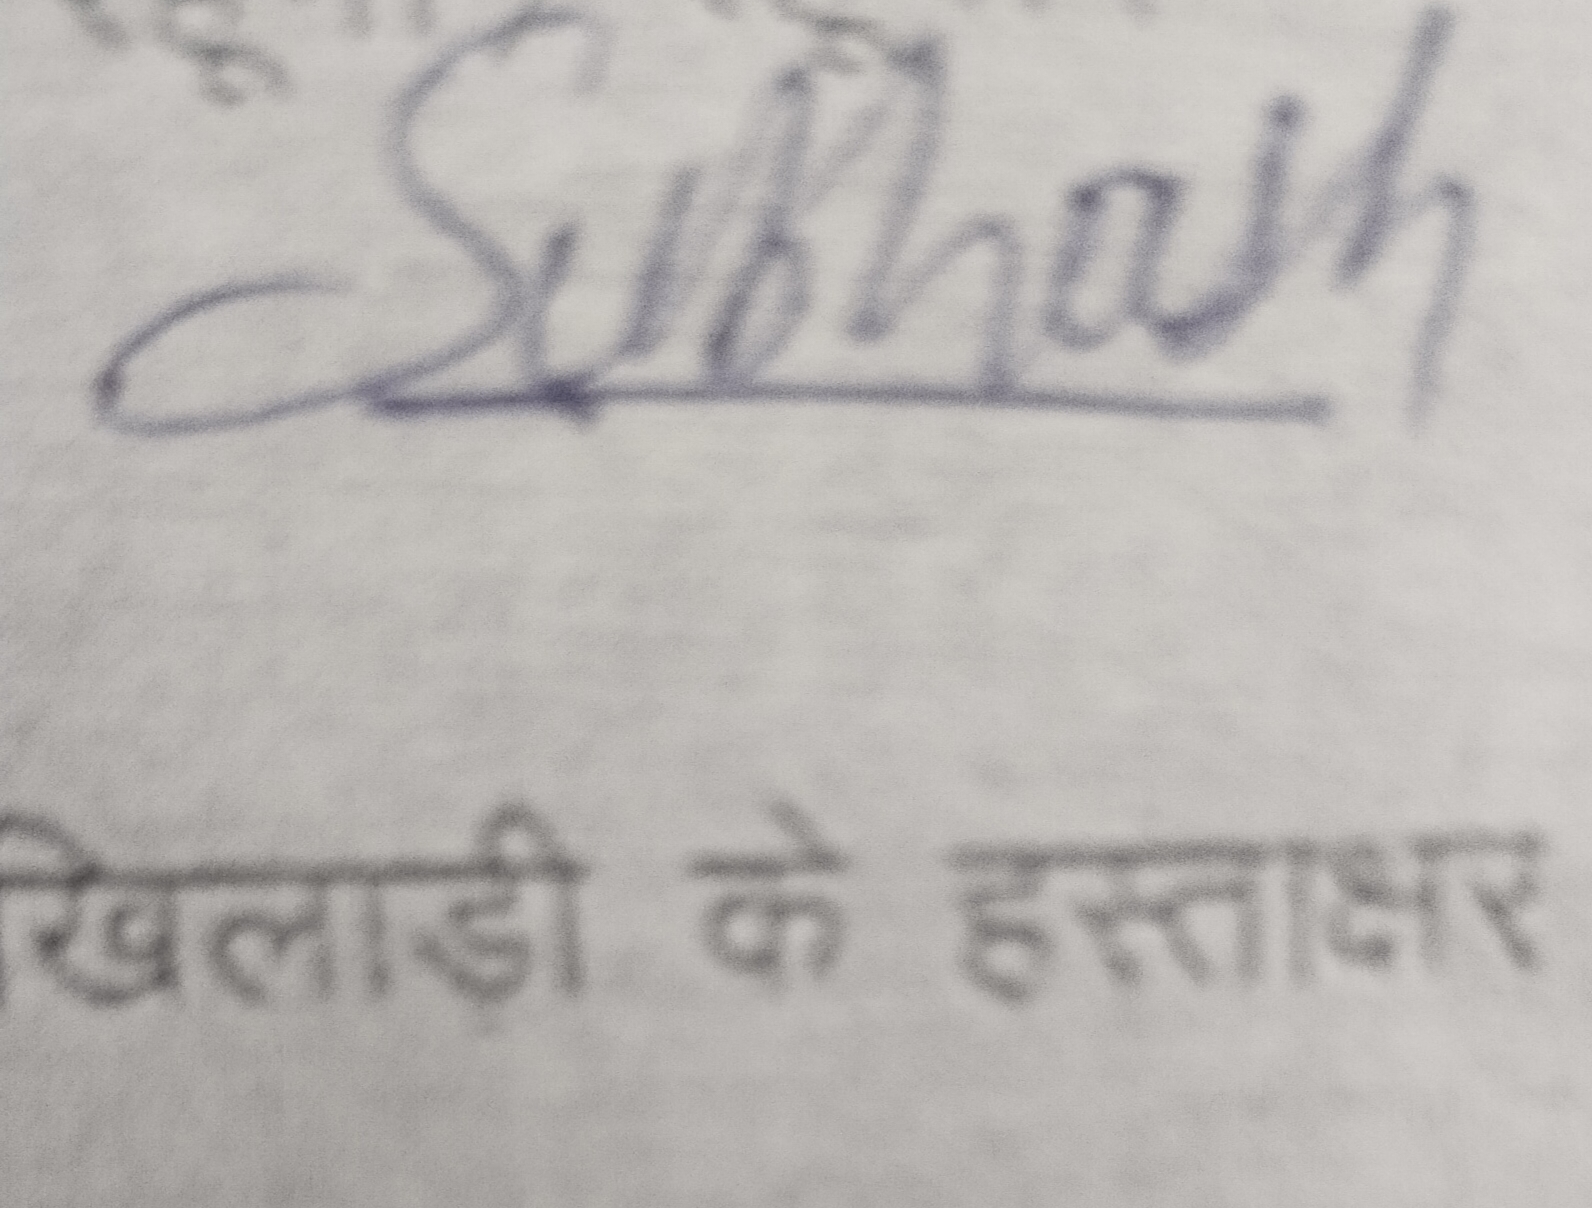 Subhash
खिलाड़ी के हस्ताक्षर